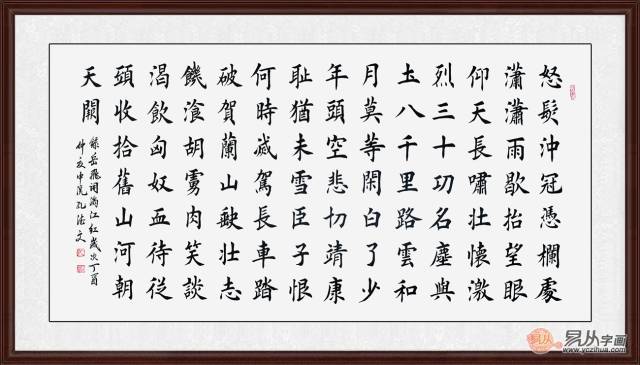 怒髮沖冠憑欄處
瀟瀟雨歇抬望眼
仰天長嘯壯懷激
烈三十功名塵與
土八千里路雲和
月莫等閑白了少
年頭空悲切靖康
耻猶未雪臣子恨
何時滅駕長車踏
破賀蘭山缺壯志
饑飡胡虜肉笑談
渴飲匈奴血待從
頭收拾舊山河朝
天闕
錄岳飛詞滿江紅歲次丁酉
仲夏中浣孔浩文
易从字画
www.yczihua.com